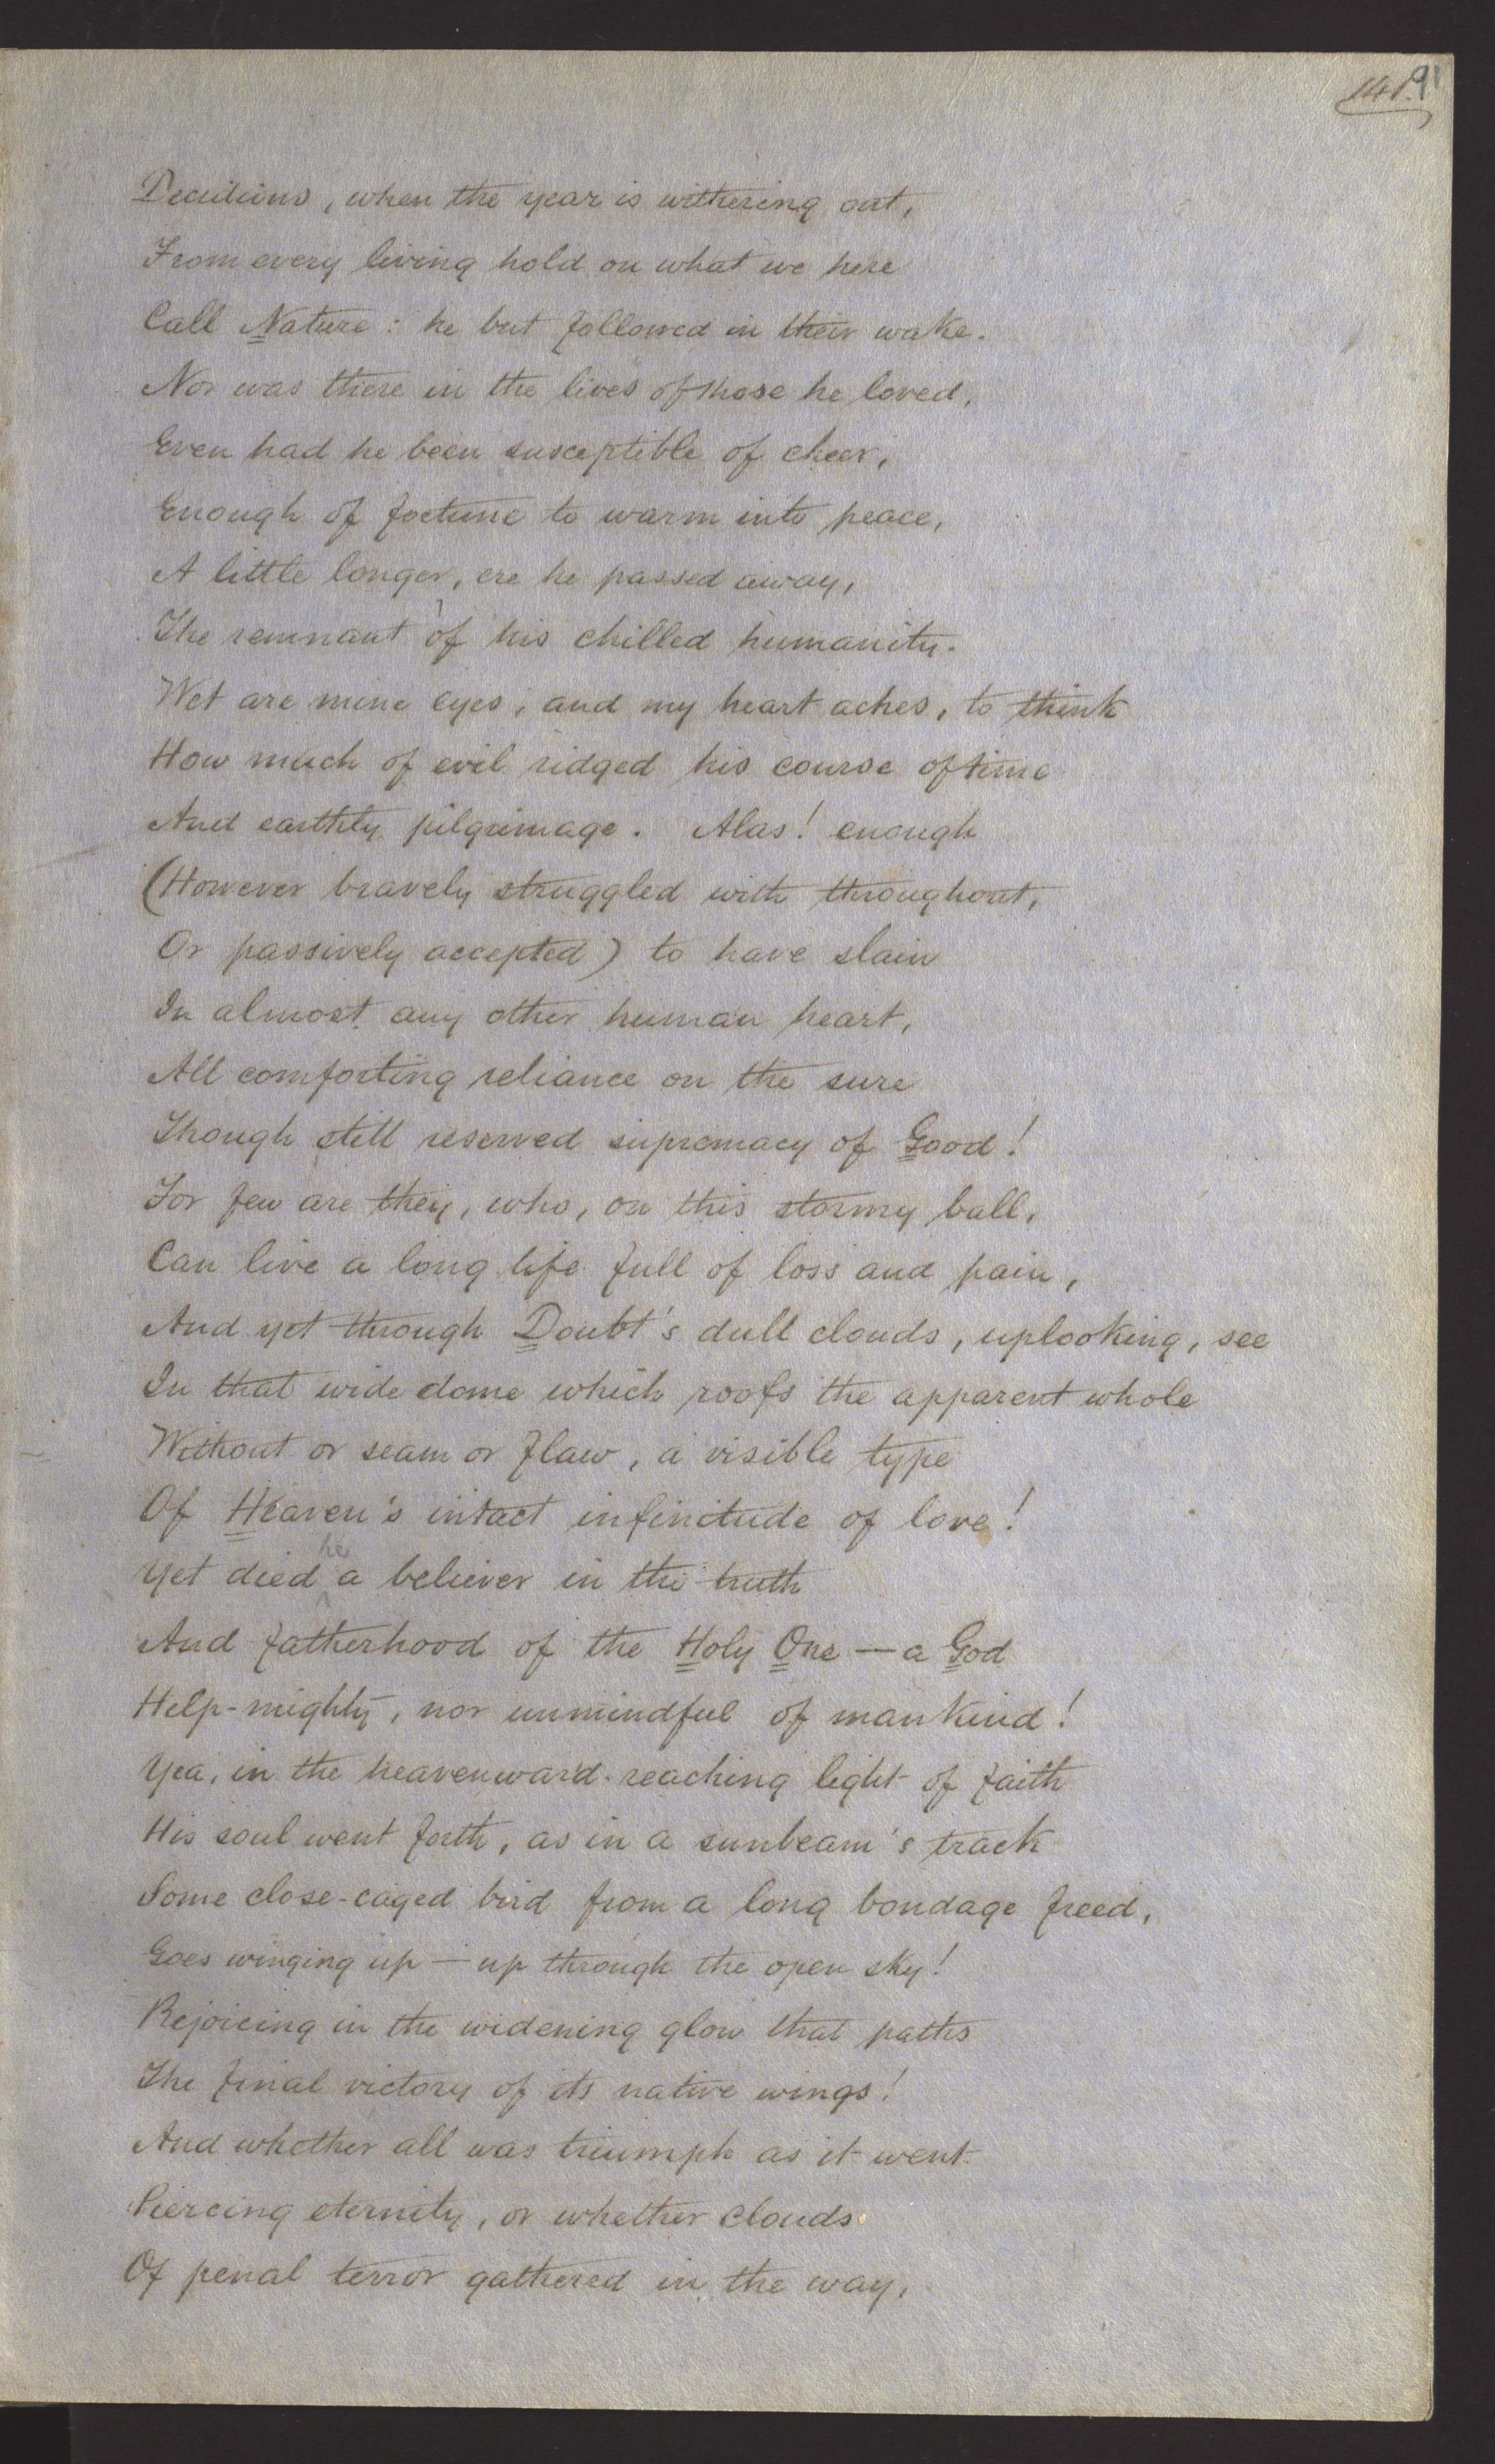 141. 91
Deciduous, when the year is withering out,
From every living hold on what we here
Call Nature: he but followed in their wake.
Nor was there in the lives of those he loved,
Even had he been susceptible of cheer,
Enough of fortune to warm into peace,
A little longer, ere he passed away,
The remnant of his chilled humanity.
Wet are mine eyes, and my heart aches, to think
How much of evil ridged his course of time
And earthly pilgrimage. Alas! enough
(However bravely struggled with throughout,
Or passively accepted) to have slain
In almost any other human heart,
All comforting reliance on the sure
Though still reserved supremacy of Good!
For few are they, who, on this stormy ball,
Can live a long life full of loss and pain,
And yet through Doubt's dull clouds, uplooking, see
In that wide dome which roofs the apparent whole
Without or seam or flaw, a visible type
Of Heaven's intact infinitude of love!
Yet died he a believer in the truth
And fatherhood of the Holy One — a God
Help-mighty, nor unmindful of mankind!
Yea, in the heavenward-reaching light of faith
His soul went forth, as in a sunbeam's track
Some close-caged bird from a long bondage freed,
Goes winging up — up through the open sky!
Rejoicing in the widening glow that paths
The final victory of its native wings!
And whether all was triumph as it went
Piercing eternity, or whether clouds
Of penal terror gathered in the way,